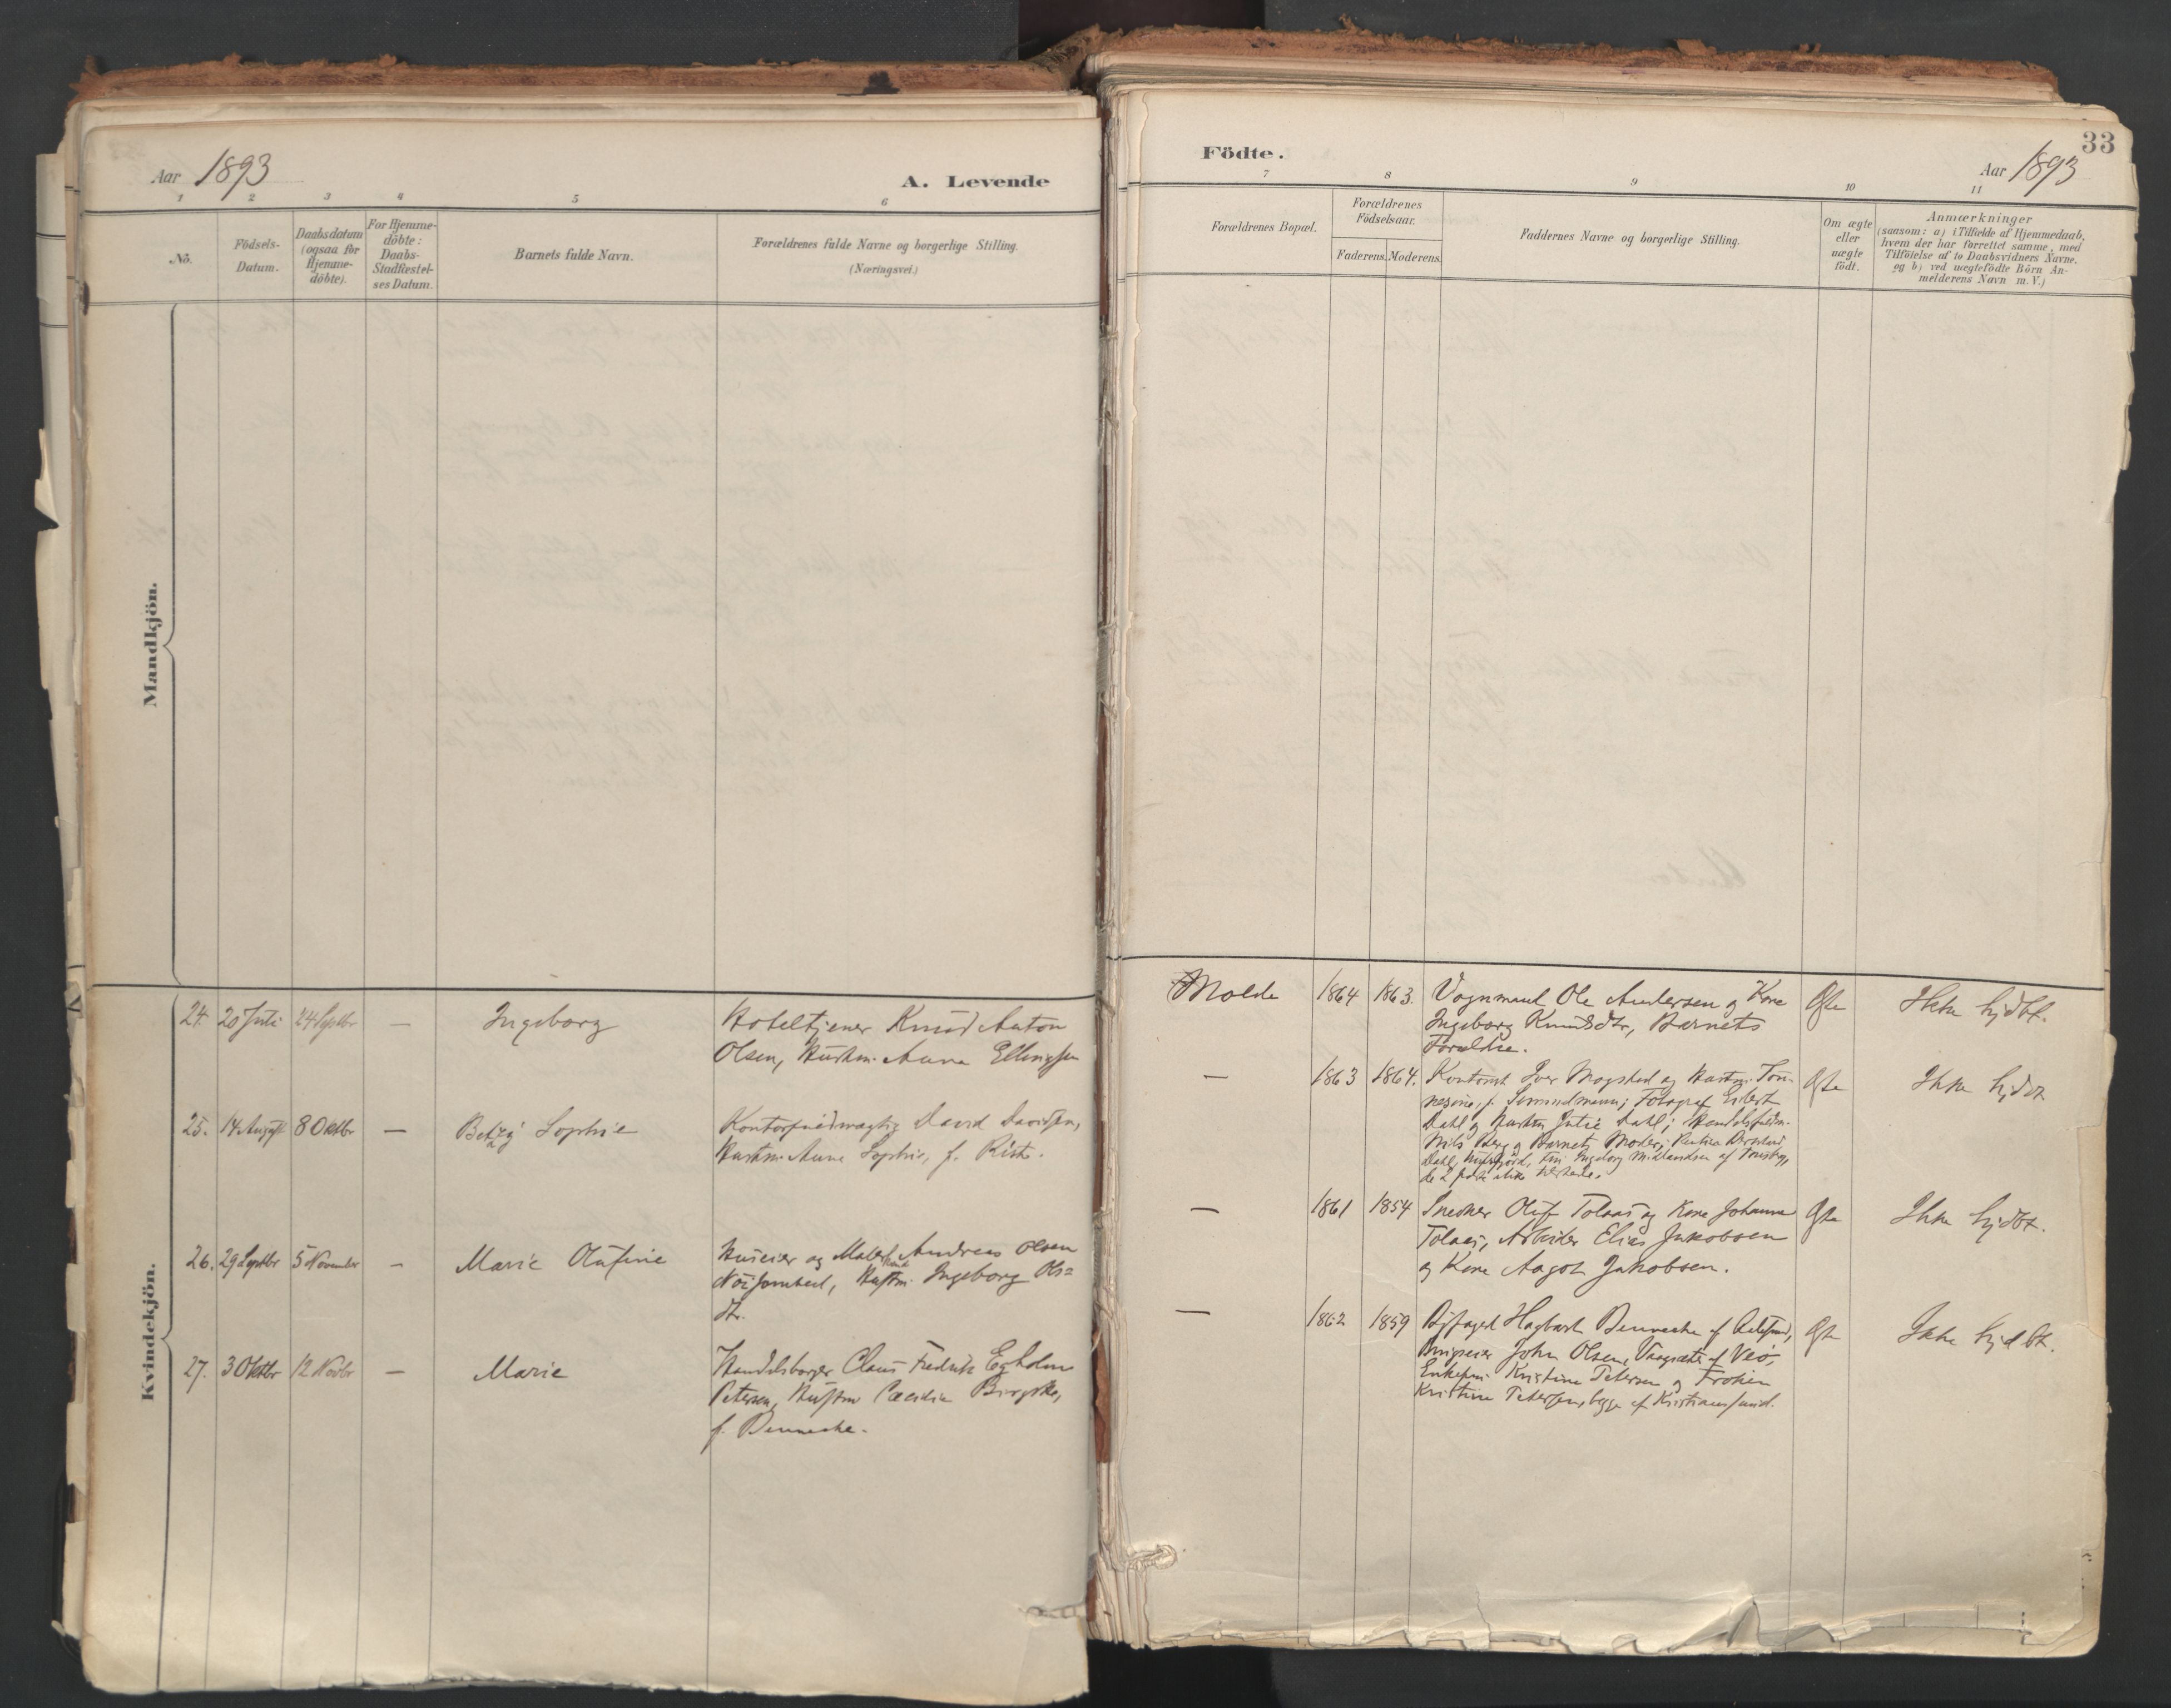 Aar 1893
A. Levende
1 2 3 4 5 6
No.
Födsels-
Datum.
Daabsdatum
(ogsaa for
Hjemme-
döbte).
For Hjemme-
döbte:
Daabs-
Stadfæstel-
ses Datum.
Barnets fulde Navn.
Forældrenes fulde Navne og borgerlige Stilling.
(Næringsvei.)
Mandkjön.
Kvindekjön.
24. 20 Juli 24 Septbr — Ingeborg
Hoteltjener Knud Anton
Olsen, Hustru Anna Ellingsen
25. 14 August 8 Oktbr — Betzy Sophie
Kontorfuldmægtig David Davidsen,
Hustru Anna Sophie, f.
26. 29 Septbr 5 November — Marie Olufine
Huseier og Maler Andreas Olsen
Nöisomhed, Hustru Ingeborg Ols=
dtr.
27. 3 Oktbr 12 Novbr — Marie
Handelsborger Claus Fredrik Egholm
Petersen, Hustru Cæcilia Birgitte,
f. Dennecke.
33
Födte.
Aar 1893
7 8 9 10 11
Forældrenes Bopæl.
Forældrenes
Födselsaar.
Faderens. Moderens.
Faddernes Navne og borgerlige Stilling.
Om ægte
eller
uægte
födt.
Anmærkninger
(saasom: a) i Tilfælde af Hjemmedaab,
hvem der har forrettet samme, med
Tilföielse af to Daabsvidners Navne,
og b) ved uægtefödte Börn An-
melderens Navn m. V.)
Molde 1864 1863. Vognmand Ole Andersen og Kone
Ingeborg Knudsdtr, Barnets
Forældre.
Ægte Ikke hjdbt.
— 1863 1864. Kontorist Iver Mogstad og Hustru
Fotograf Eilert
Dahl og Hustru Julie Dahl;
Nils Berg og Barnets Moder;
Dahl, Ingeborg af
de 2
Ægte Ikke hjdbt
— 1861 1854 Snedker Oluf Tolaas og Kone Johanna
Tolaas, Arbeider Elias Jakobsen
og Kone Aagot Jakobsen.
Ægte Ikke hjdbt.
— 1862 1859 Byfoged Hagbart Dennecke af Aalesund,
John Olsen, af Veö,
Enkefru Kristine Petersen og Fröken
Kristine Petersen, begge af Kristiansund.
Ægte Ikke hjdbt.